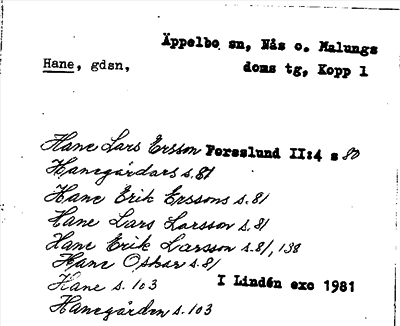 Äppelbo sn, Nås o. Malungs
Hane, gdsn, doms tg, Kopp l
Hane Lars Ersson Forsslund II:4 s 80
Hanegårdars s.81
Hane Erik Erssons s.81
Hane Lars Larsson s.81
Hane Erik Larsson s.81, 138
Hane Oskar s.81
Hane s.103 I Lindén exc 1981
Hanegården s.103